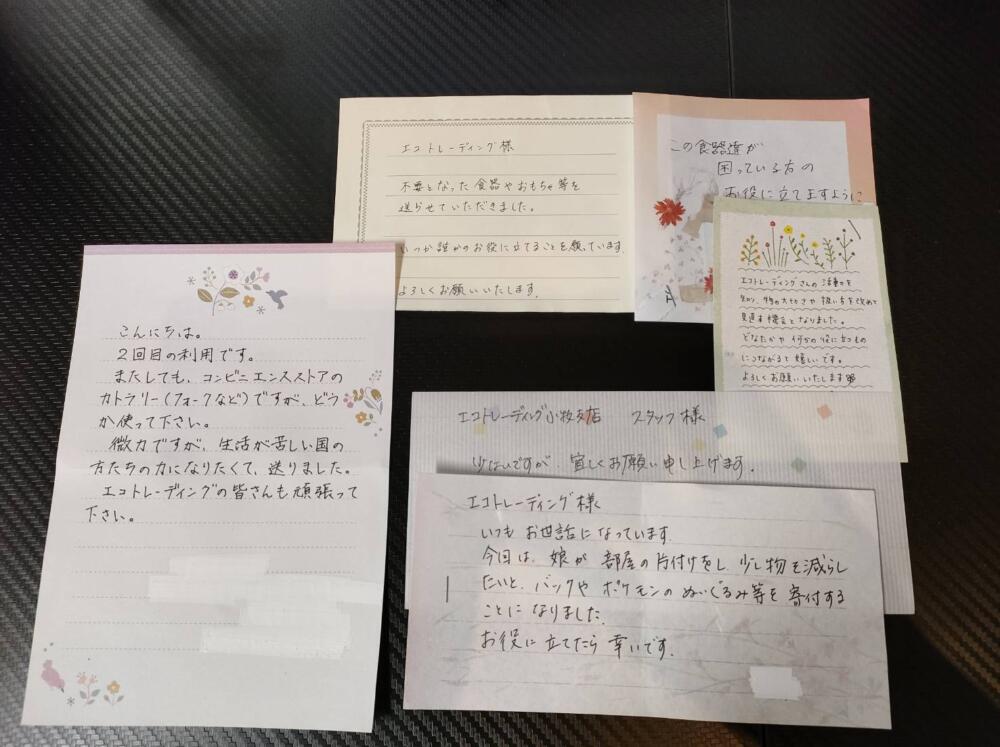 エコトレーディング様
不要となった食器やおもちゃ等を
送らせていただきました。
いつか誰かのお役に立てることを願っています。
よろしくお願いいたします。
この食器達が
困っている方の
お役に立てますように
エコトレーディングさんの活動を
知り、物の大切さや扱い方を改めて
見直す機会となりました。
どなたかや何かの役に立つもの
につながると嬉しいです。
よろしくお願いいたします
こんにちは。
2回目の利用です。
またしても、コンビニエンスストアの
カトラリー(フォークなど)ですが、どう
か使って下さい。
微力ですが、生活が苦しい国の
方たちの力になりたくて、送りました。
エコトレーディングの皆さんも頑張って
下さい。
エコトレーディング小牧支店 スタッフ様
少ないですが、宜しくお願い申し上げます。
エコトレーディング様
いつもお世話になっています。
今回は、娘が部屋の片付けをし、少し物を減らし
たいと、バックやポケモンのぬいぐるみ等を寄付する
ことになりました。
お役に立てたら幸いです。